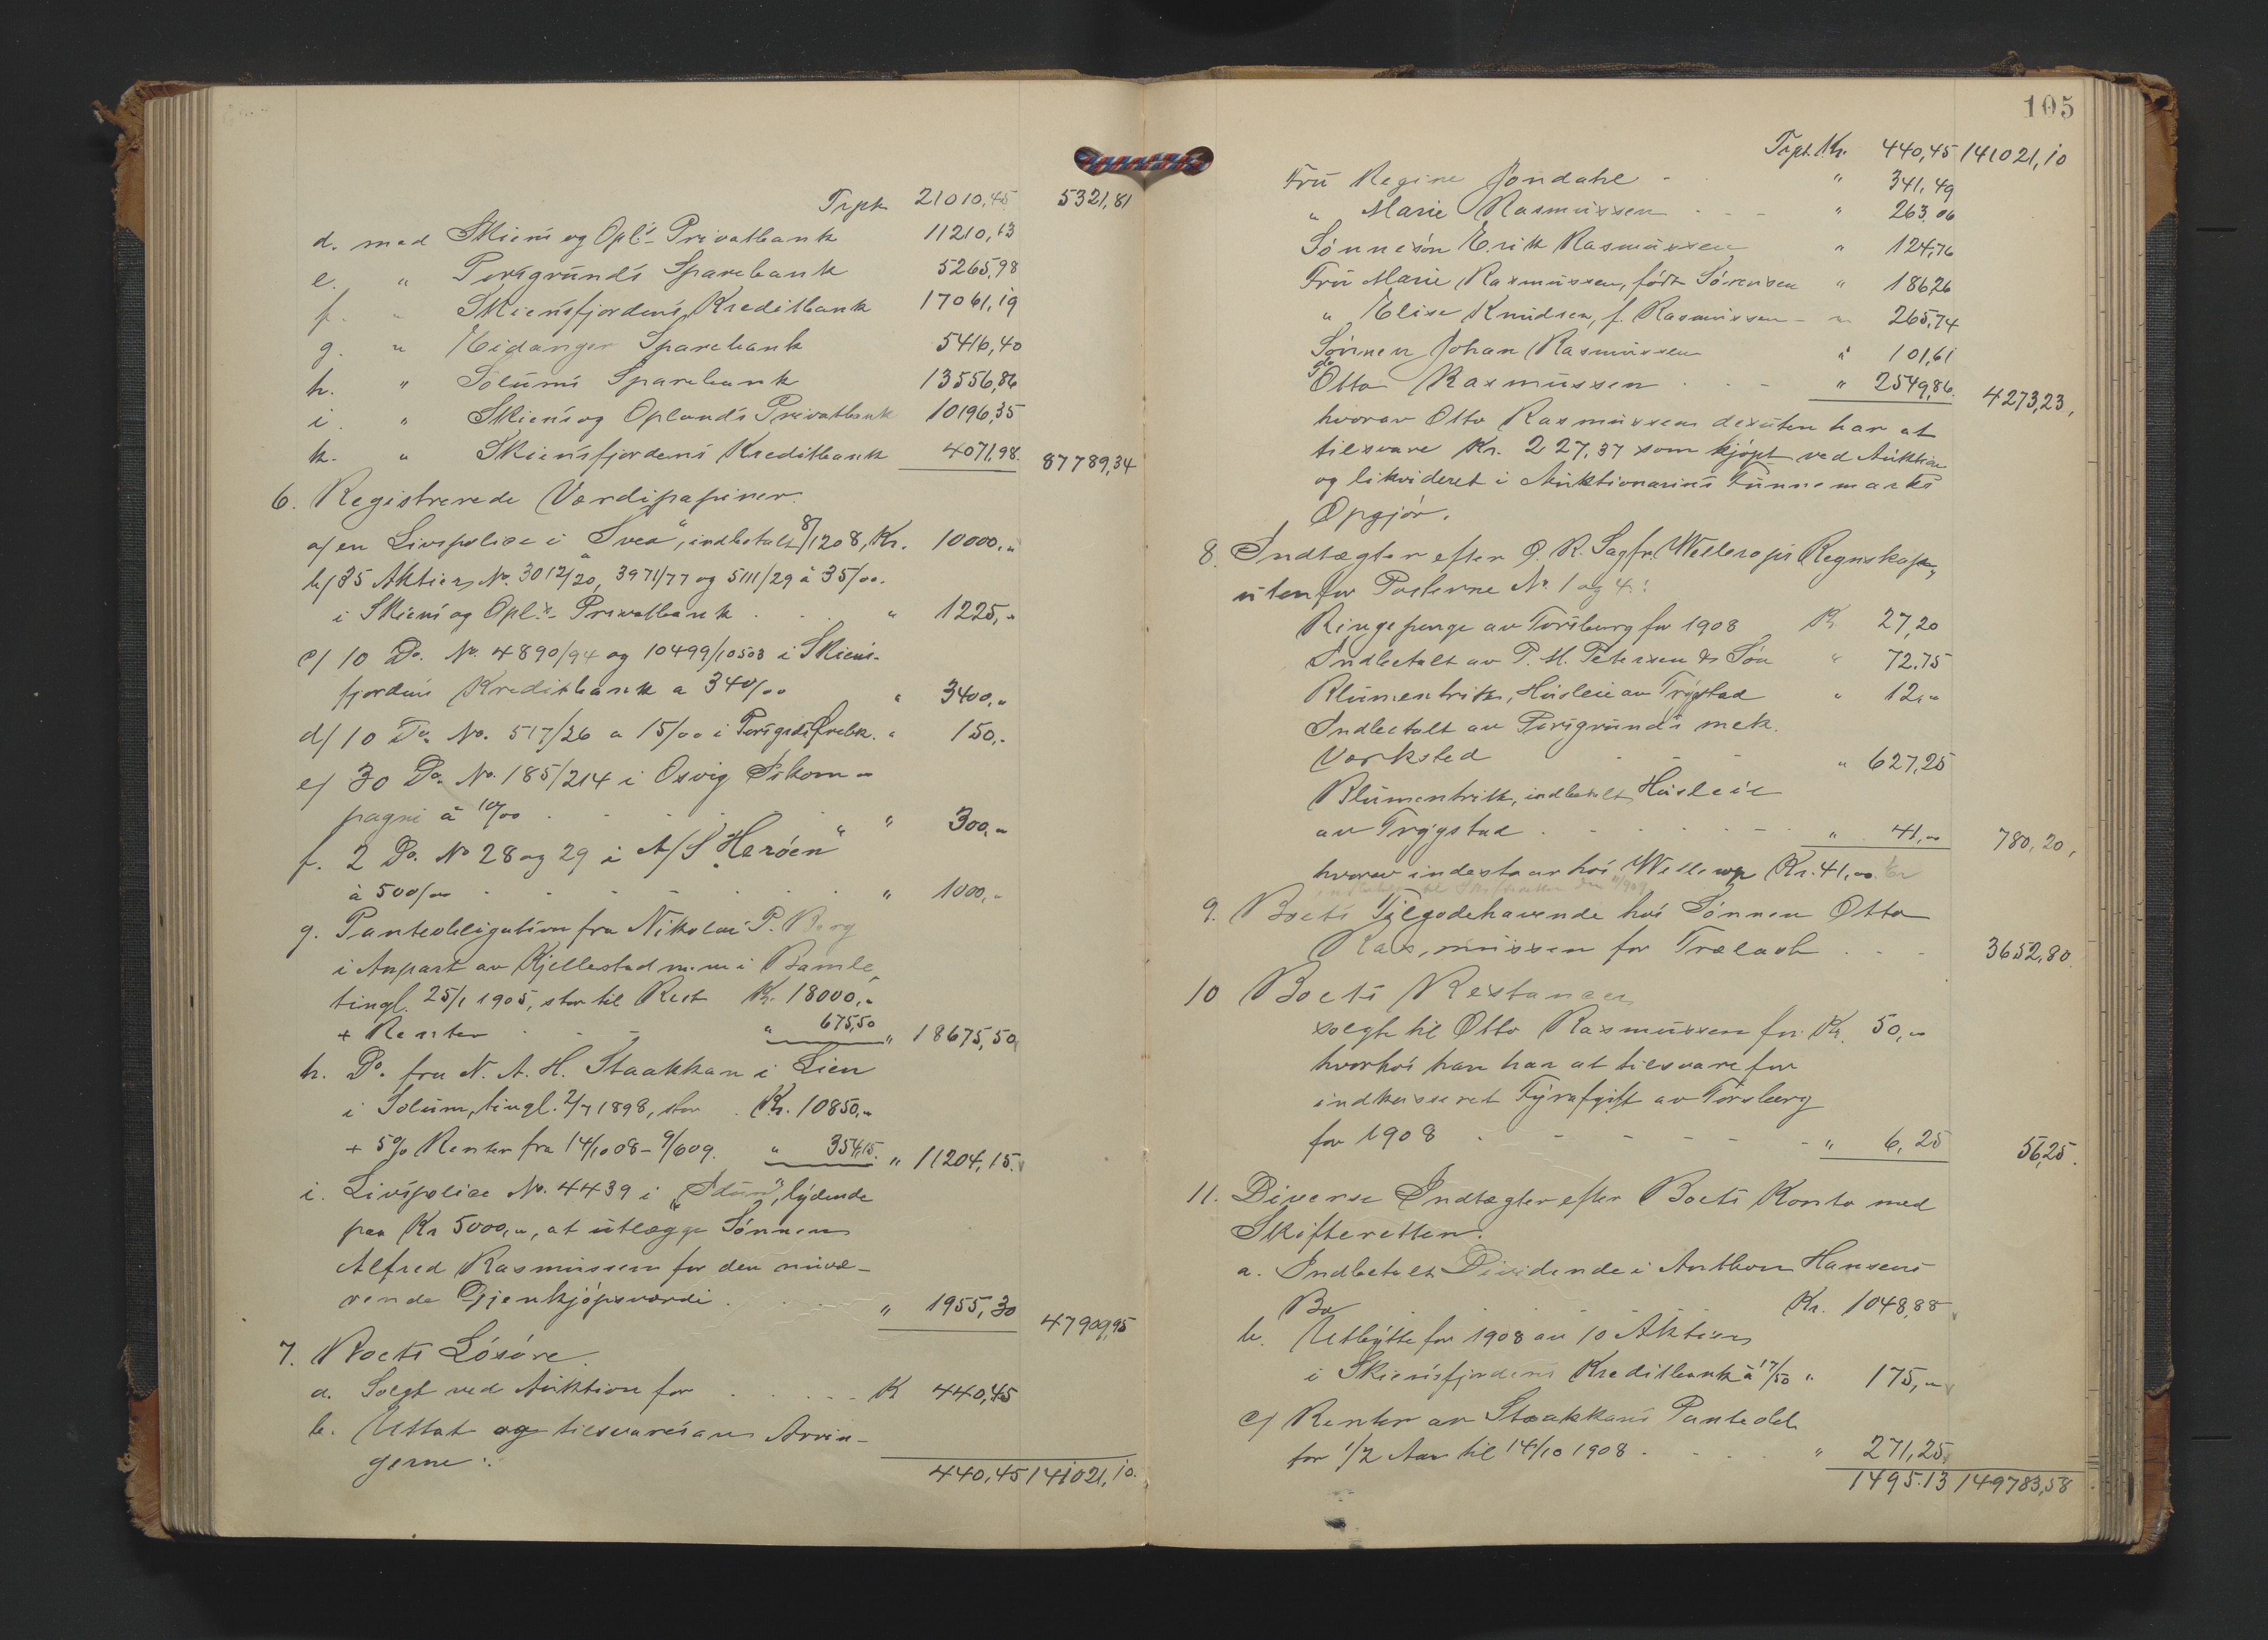 Trpt 21010,45 5321,81
d. med Skiens og Opl's Privatbank 11210,13
e. " Porsgrunds Sparebank 5265,98
f. " Skiensfjordens Kreditbank 17061,19
g. " Eidanger Sparebank 5416,40
h. " Solums Sparebank 13556,86
i. " Skiens og Oplands Privatbank 10196,35
k. " Skiensfjordens Kreditbank 4071,98. 87789,34
6. Registrerede Værdipapirer.
a/ en Livspolice i "Svea", indbetalt 8/1208, Kr. 10000,"
b/ 35 Aktier, No. 3012/20, 3971/77 og 5111/29 à 35/00.
i Skiens og Opl.s Privatbank . . . " 1225,"
c/ 10 Do. No. 4890/94 og 10499/10503 i Skiens-
fjordens Kreditbank a 340/00 " 3400,"
d/ 10 Do. No. 517/26 a 15/00 i Porsgrds " 150,-
e/ 30 Do. No. 185/214 i Osvig Iskom-
pagni à 10/00 . . . . " 300,"
f. 2 Do. No 28 og 29 i A/S "Herøen"
à 500/00 . . . . " 1000,-
g. Panteobligation fra Nikolai P. Berg
i Anpart av Kjellestad m.m i Bamle,
tingl. 25/1 1905, stor til Rest Kr. 18000,"
+ Renter . . - " 675,50 " 18675,50
h. Do. fra N. A. H. Staakkan i Lien
i Solum, tingl. 2/7 1898, stor . Kr. 10850,"
+ 5% Renter fra 14/10 08 - 9/6 09. " 354,15. " 11204,15.
i. Livspolice No. 4439 i "Idun", lydende
paa Kr 5000,", at utlægge Sønnen
Alfred Rasmussen for den nuvæ-
rende Gjenkjøpsværdi . . . " 1955,30 47909,95
7. Boets Løsøre.
a. Solgt ved Auktion for . . . . . K 440,45
b. Uttat og tilsvares av Arvin-
gerne:
440,45 141021,10.
105
Trpt. Kr. 440,45 141021,10
Fru Regine Jondahl - " 341,49
" Marie Rasmussen . . - " 263,06
Sønnesøn Erik Rasmussen " 124,76
Fru Marie Rasmussen, født Sørensen " 186,26
" Elise Knudsen, f. Rasmussen - " 265,74
Sønnen Johan Rasmussen " 101,61
do Otto Rasmussen . . - " 2549,86. 4273,23,
hvorav Otto Rasmussen desuten har at
tilsvare Kr. 227,37 som kjøpt ved Auktion
og likvideret i Auktionarius Funnemarks
Opgjør.
8. Indtægter efter O. R. Sagfr. Wellerops Regnskap,
utenfor Posterne No. 1 og 4:
Ringepenge av Torsberg for 1908 K. 27,20
Indbetalt av P. M. Petersen & Søn " 72.75
Blumentritt, Husleie av Trygstad " 12,"
Indbetalt av Porsgrunds mek.
Værksted - - " 627,25
Blumentritt, indbetalt Husleie
av Trygstad . - . . . - - " 41,00 780,20,
hvorav indestaar hos Wellerop Kr. 41,00.
9. Boets Tilgodehavende hos Sønnen Otto
Rasmussen for Trælast . . - 3652,80
10 Boets Restancer
solgte til Otto Rasmussen for Kr. 50,"
hvorhos han har at tilsvare for
indkasseret Fyrafgift av Torsberg
for 1908 . - - - - - - " 6,25 56,25.
11. Diverse Indtægter efter Boets Konto med
Skifteretten.
a. Indbetalt Dividende i Anthon Hansens
Bo Kr. 1048,88
b. Utbytte for 1908 av 10 Aktier
i Skiensfjordens Kreditbank à 17/50 " 175,"
c/ Renter av Staakkans Panteobl.
for 1/2 Aar til 14/10 1908 . . . " 271,25
1495.13 149783,58